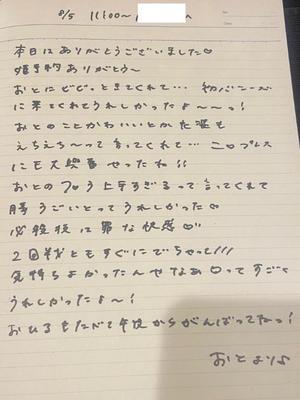 8/5 11:00〜
本日はありがとうございました♡
ありがとう〜
おとにどどっときてくれて… 初バニーズ
に来てくれてうれしかったよ〜〜っ!
おとのことかわいいとか
えちえち〜って言ってくれて…
にも大興奮やったね!!
おとのフロう上手すぎるって言ってくれて
うごいとってうれしかった♡
な快感♡
2回ともすぐにでちゃって!!!
気持ちよかったんやなあって すごく
うれしかったよ〜!
おひるもたべて午後からがんばってねっ!
おとより♪